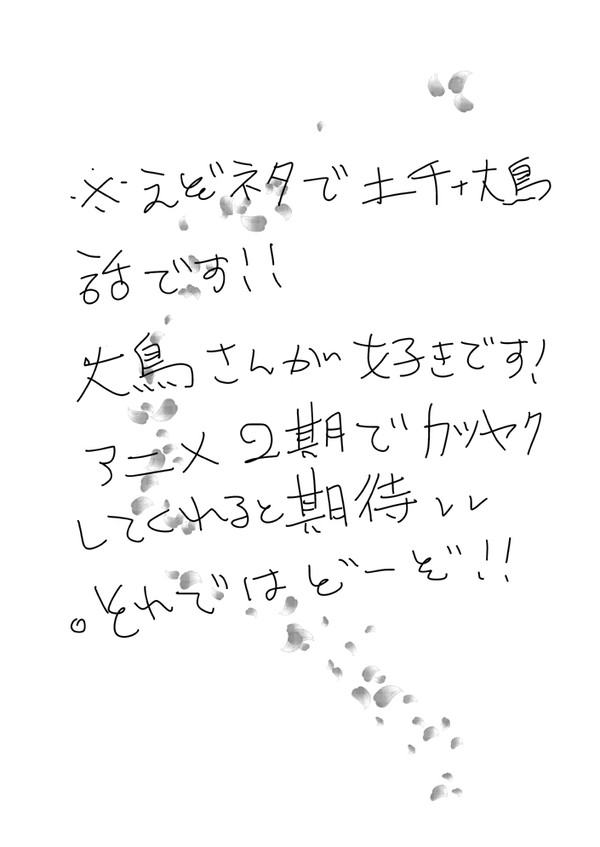 ※えぞネタで土千+大鳥
話です!!
大鳥さんが好きです!
アニメ2期でカツヤク
してくれると期待ﾚﾚ
。それではどーぞ!!